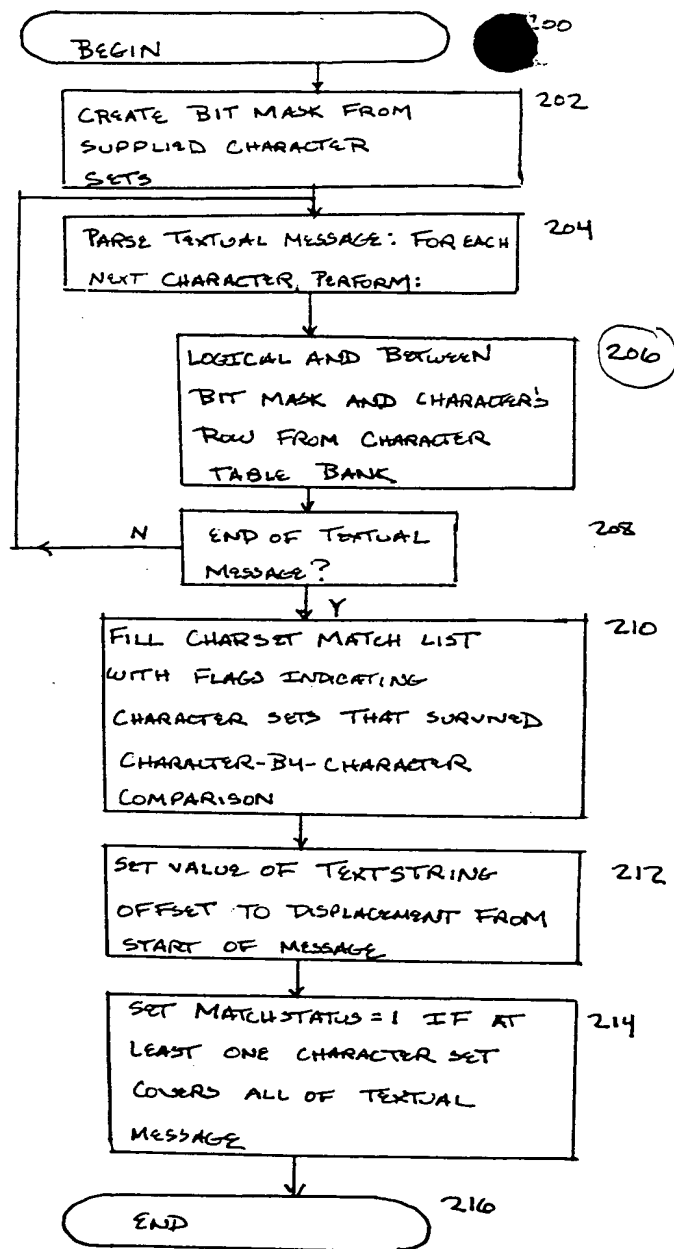 BEGIN
200
CREATE BIT MASK FROM
SUPPLIED CHARACTER
SETS
202
PARSE TEXTUAL MESSAGE: FOR EACH
NEXT CHARACTER, PERFORM:
204
LOGICAL AND BETWEEN
BIT MASK AND CHARACTER'S
ROW FROM CHARACTER
TABLE BANK
206
END OF TEXTUAL
MESSAGE?
208
N
Y
FILL CHARSET MATCH LIST
WITH FLAGS INDICATING
CHARACTER SETS THAT SURVIVED
CHARACTER-BY-CHARACTER
COMPARISON
210
SET VALUE OF TEXTSTRING
OFFSET TO DISPLACEMENT FROM
START OF MESSAGE
212
SET MATCHSTATUS=1 IF AT
LEAST ONE CHARACTER SET
COVERS ALL OF TEXTUAL
MESSAGE
214
END
216